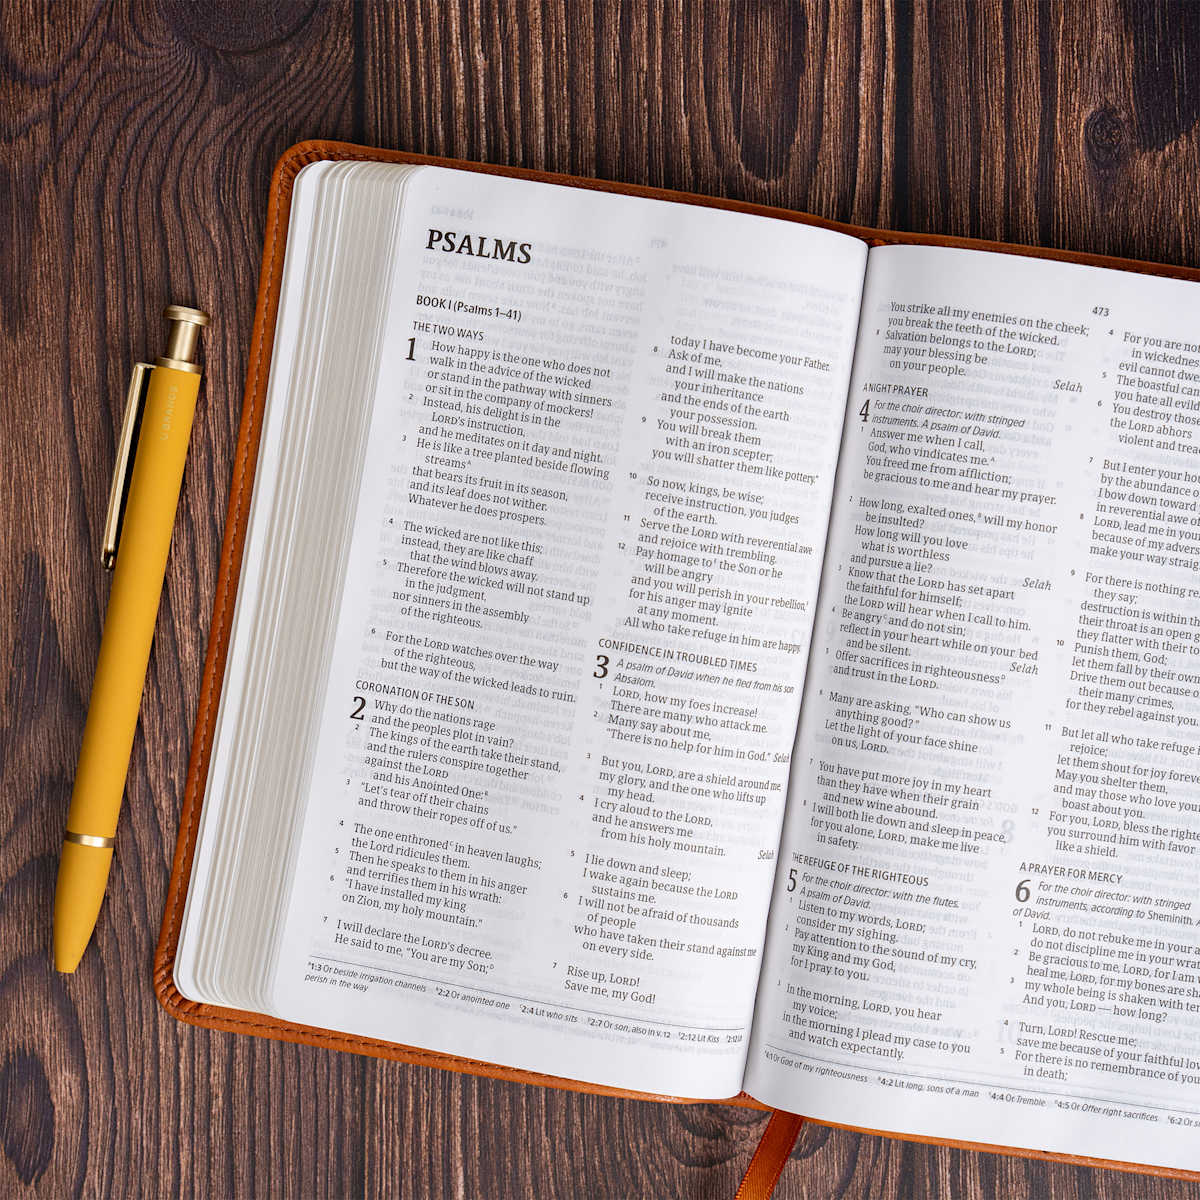 U BRANDS
PSALMS
BOOK I (Psalms 1–41)
THE TWO WAYS
1 How happy is the one who does not
walk in the advice of the wicked
or stand in the pathway with sinners
or sit in the company of mockers!
2 Instead, his delight is in the
LORD's instruction,
and he meditates on it day and night.
3 He is like a tree planted beside flowing
streams^A
that bears its fruit in its season,
and its leaf does not wither.
Whatever he does prospers.
4 The wicked are not like this;
instead, they are like chaff
that the wind blows away.
5 Therefore the wicked will not stand up
in the judgment,
nor sinners in the assembly
of the righteous.
6 For the LORD watches over the way
of the righteous,
but the way of the wicked leads to ruin.
CORONATION OF THE SON
2 Why do the nations rage
and the peoples plot in vain?
2 The kings of the earth take their stand,
and the rulers conspire together
against the LORD
and his Anointed One:^B
3 "Let's tear off their chains
and throw their ropes off of us."
4 The one enthroned^C in heaven laughs;
the Lord ridicules them.
5 Then he speaks to them in his anger
and terrifies them in his wrath:
6 "I have installed my king
on Zion, my holy mountain."
7 I will declare the LORD's decree.
He said to me, "You are my Son;^D
today I have become your Father.
8 Ask of me,
and I will make the nations
your inheritance
and the ends of the earth
your possession.
9 You will break them
with an iron scepter;
you will shatter them like pottery."
10 So now, kings, be wise;
receive instruction, you judges
of the earth.
11 Serve the LORD with reverential awe
and rejoice with trembling.
12 Pay homage to^E the Son or he
will be angry
and you will perish in your rebellion,^F
for his anger may ignite
at any moment.
All who take refuge in him are happy.
CONFIDENCE IN TROUBLED TIMES
3 A psalm of David when he fled from his son
Absalom.
1 LORD, how my foes increase!
There are many who attack me.
2 Many say about me,
"There is no help for him in God." Selah
3 But you, LORD, are a shield around me,
my glory, and the one who lifts up
my head.
4 I cry aloud to the LORD,
and he answers me
from his holy mountain. Selah
5 I lie down and sleep;
I wake again because the LORD
sustains me.
6 I will not be afraid of thousands
of people
who have taken their stand against me
on every side.
7 Rise up, LORD!
Save me, my God!
^A1:3 Or beside irrigation channels ^B2:2 Or anointed one ^C2:4 Lit who sits ^D2:7 Or son, also in v. 12 ^E2:12 Lit Kiss ^F2:12 Lit
perish in the way
473
You strike all my enemies on the cheek;
you break the teeth of the wicked.
8 Salvation belongs to the LORD;
may your blessing be
on your people. Selah
A NIGHT PRAYER
4 For the choir director: with stringed
instruments. A psalm of David.
1 Answer me when I call,
God, who vindicates me.^A
You freed me from affliction;
be gracious to me and hear my prayer.
2 How long, exalted ones,^B will my honor
be insulted?
How long will you love
what is worthless
and pursue a lie? Selah
3 Know that the LORD has set apart
the faithful for himself;
the LORD will hear when I call to him.
4 Be angry^C and do not sin;
reflect in your heart while on your bed
and be silent. Selah
5 Offer sacrifices in righteousness^D
and trust in the LORD.
6 Many are asking, "Who can show us
anything good?"
Let the light of your face shine
on us, LORD.
7 You have put more joy in my heart
than they have when their grain
and new wine abound.
8 I will both lie down and sleep in peace,
for you alone, LORD, make me live
in safety.
THE REFUGE OF THE RIGHTEOUS
5 For the choir director: with the flutes.
A psalm of David.
1 Listen to my words, LORD;
consider my sighing.
2 Pay attention to the sound of my cry,
my King and my God,
for I pray to you.
3 In the morning, LORD, you hear
my voice;
in the morning I plead my case to you
and watch expectantly.
4 For you are not
in wickedness
evil cannot dwe
5 The boastful can
you hate all evild
6 You destroy those
the LORD abhors
violent and trea
7 But I enter your hou
by the abundance o
I bow down toward
in reverential awe o
8 LORD, lead me in your
because of my advers
make your way straig
9 For there is nothing re
they say;
destruction is within th
their throat is an open
they flatter with their to
10 Punish them, God;
let them fall by their own
Drive them out because o
their many crimes,
for they rebel against you
11 But let all who take refuge i
rejoice;
let them shout for joy forev
May you shelter them,
and may those who love you
boast about you.
12 For you, LORD, bless the righte
you surround him with favor
like a shield.
A PRAYER FOR MERCY
6 For the choir director: with stringed
instruments, according to Sheminith. A
of David.
1 LORD, do not rebuke me in your a
do not discipline me in your wra
2 Be gracious to me, LORD, for I am
heal me, LORD, for my bones are sha
3 my whole being is shaken with ter
And you, LORD — how long?
4 Turn, LORD! Rescue me;
save me because of your faithful lov
5 For there is no remembrance of you
in death;
^A4:1 Or God of my righteousness ^B4:2 Lit long, sons of a man ^C4:4 Or Tremble ^D4:5 Or Offer right sacrifices ^E6:2 Or